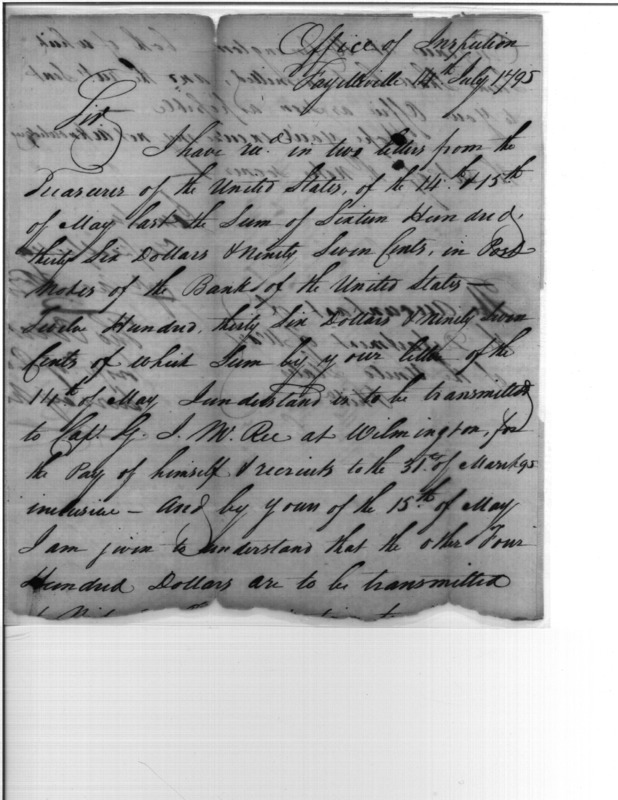 Office of Inspection
Fayetteville 14th July 1795
Sir
I have rec. in two letters from the
Treasurer of the United States, of the 14.th & 15th
of May last the Sum of Sixteen Hundred,
thirty Six Dollars & Ninety Seven Cents, in Post
Notes of the Bank of the United States —
Twelve Hundred, thirty Six Dollars & Ninety Seven
Cents of which Sum by your letter of the
14th of May, I understand is to be transmitted
to Capt. G. J. Mc. Ree at Wilmington, for
the Pay of himself & recruits to the 31st. of March 95
inclusive — And by yours of the 15.th of May
I am given to understand that the other Four
Hundred Dollars are to be transmitted